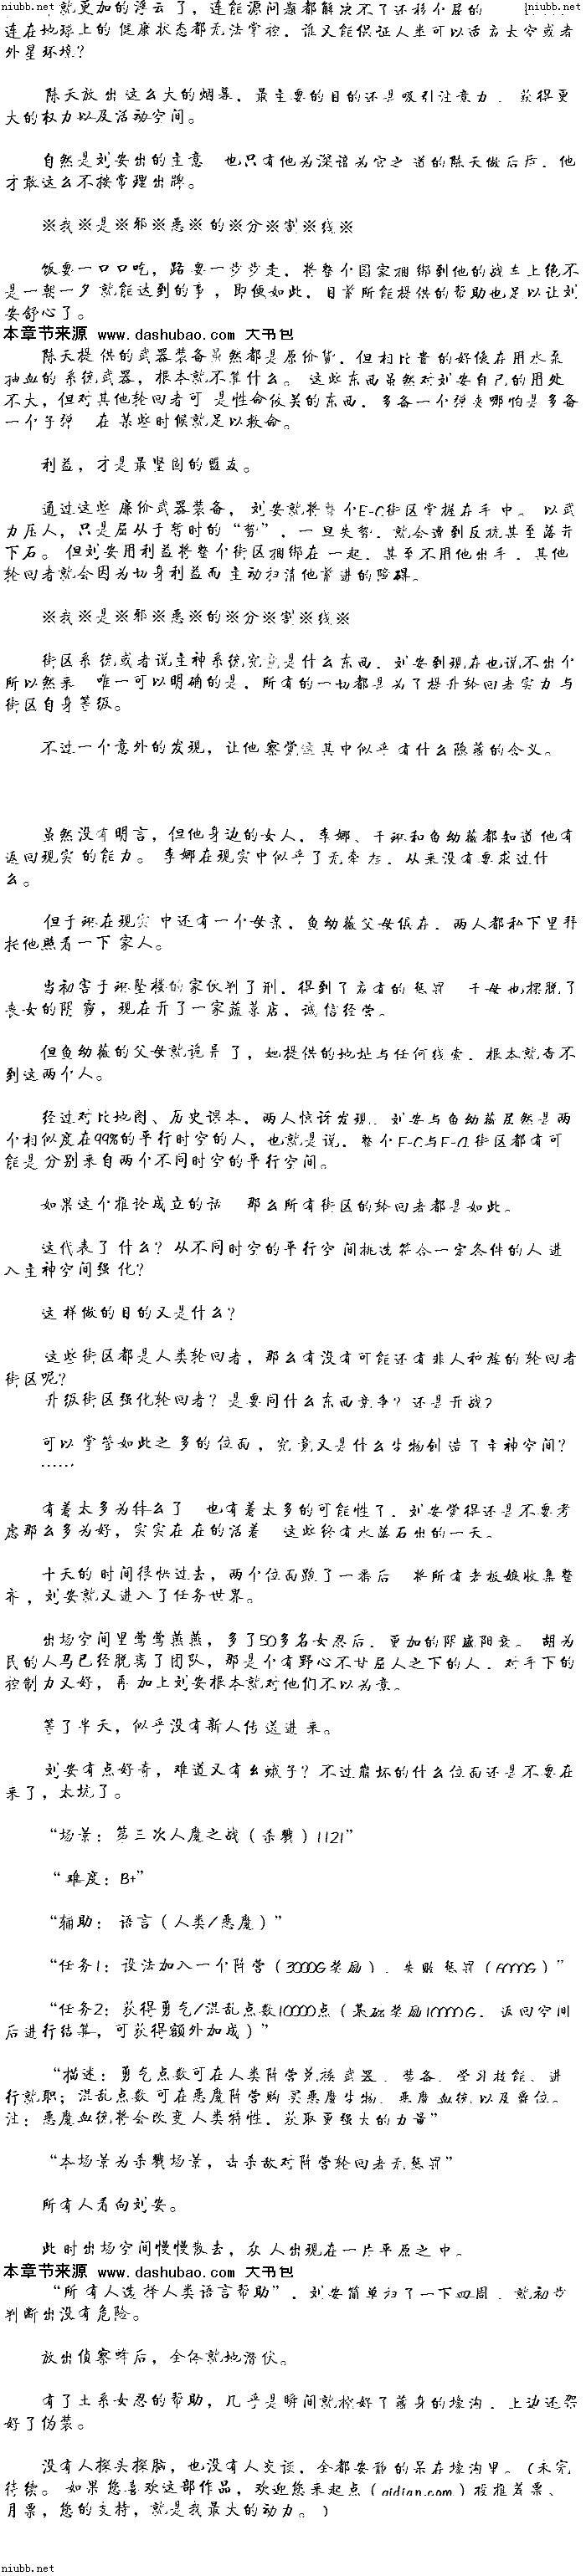 niubb.net
niubb.net
就更加的浮云了，连能源问题都解决不了还移个屁的
连在地球上的健康状态都无法掌控，谁又能保证人类可以适应太空或者
外星环境？
陈天放出这么大的烟幕，最主要的目的还是吸引注意力，获得更
大的权力以及活动空间。
自然是刘安出的主意 也只有他为深谙为官之道的陈天做后盾，他
才敢这么不按常理出牌。
※我※是※邪※恶※的※分※割※线※
饭要一口口吃，路要一步步走，将整个国家捆绑到他的战车上绝不
是一朝一夕就能达到的事，即便如此，目前所能提供的帮助也足以让刘
安舒心了。
本章节来源 www.dashubao.com 大书包
陈天提供的武器装备虽然都是原价货，但相比贵的好像在用水泵
抽血的系统武器，根本就不算什么。这些东西虽然对刘安自己的用处
不大，但对其他轮回者可 是性命攸关的东西，多备一个弹夹哪怕是多备
一个子弹 在某些时候就足以救命。
利益，才是最坚固的盟友。
通过这些廉价武器装备，刘安就将整个E-C街区掌握在手中。以武
力压人，只是屈从于暂时的“势”，一旦失势，就会遭到反抗甚至落井
下石。但刘安用利益将整个街区捆绑在一起，甚至不用他出手，其他
轮回者就会因为切身利益而主动扫清他前进的障碍。
※我※是※邪※恶※的※分※割※线※
街区系统或者说主神系统究竟是什么东西，刘安到现在也说不出个
所以然来 唯一可以明确的是，所有的一切都是为了提升轮回者实力与
街区自身等级。
不过一个意外的发现，让他察觉这其中似乎有什么隐藏的含义。
虽然没有明言，但他身边的女人，李娜、于琳和鱼幼薇都知道他有
返回现实的能力。李娜在现实中似乎了无牵挂，从来没有要求过什
么。
但于琳在现实中还有一个母亲，鱼幼薇父母俱在，两人都私下里拜
托他照看一下家人。
当初害于琳坠楼的家伙判了刑，得到了应有的惩罚 于母也摆脱了
丧女的阴霾，现在开了一家蔬菜店，诚信经营。
但鱼幼薇的父母就诡异了，她提供的地址与任何线索，根本就查不
到这两个人。
经过对比地图、历史课本，两人惊讶发现，刘安与鱼幼薇居然是两
个相似度在99%的平行时空的人，也就是说，整个E-C与F-Q街区都有可
能是分别来自两个不同时空的平行空间。
如果这个推论成立的话 那么所有街区的轮回者都是如此。
这代表了什么？从不同时空的平行空间挑选符合一定条件的人进
入主神空间强化？
这样做的目的又是什么？
这些街区都是人类轮回者，那么有没有可能还有非人种族的轮回者
街区呢？
升级街区强化轮回者？是要同什么东西竞争？还是开战？
可以掌管如此之多的位面，究竟又是什么生物创造了主神空间？
……
有着太多为什么了 也有着太多的可能性了，刘安觉得还是不要考
虑那么多为好，实实在在的活着 这些终有水落石出的一天。
十天的时间很快过去，两个位面跑了一番后 将所有老板娘收集整
齐，刘安就又进入了任务世界。
出场空间里莺莺燕燕，多了50多名女忍后，更加的阴盛阳衰。胡为
民的人马已经脱离了团队，那是个有野心不甘屈人之下的人，对手下的
控制力又好，再加上刘安根本就对他们不以为意。
等了半天，似乎没有新人传送进来。
刘安有点好奇，难道又有幺蛾子？不过崩坏的什么位面还是不要在
来了，太坑了。
“场景：第三次人魔之战（杀戮）1121”
“难度：B+”
“辅助： 语言（人类/恶魔）”
“任务1：设法加入一个阵营（3000G奖励），失败惩罚（6000G）”
“任务2：获得勇气/混乱点数10000点（基础奖励10000G，返回空间
后进行结算，可获得额外加成）”
“描述：勇气点数可在人类阵营兑换武器、装备、学习技能、进
行就职；混乱点数可在恶魔阵营购买恶魔生物、恶魔血统以及爵位。
注：恶魔血统将会改变人类特性，获取更强大的力量”
“本场景为杀戮场景，击杀敌对阵营轮回者无惩罚”
所有人看向刘安。
此时出场空间慢慢散去，众人出现在一片平原之中。
本章节来源 www.dashubao.com 大书包
“所有人选择人类语言帮助”，刘安简单扫了一下四周，就初步
判断出没有危险。
放出侦察蜂后，全体就地潜伏。
有了土系女忍的帮助，几乎是瞬间就挖好了藏身的壕沟，上边还架
好了伪装。
没有人探头探脑，也没有人交谈，全都安静的呆在壕沟里。（未完
待续。如果您喜欢这部作品，欢迎您来起点（qidian.com）投推荐票、
月票，您的支持，就是我最大的动力。）
niubb.net